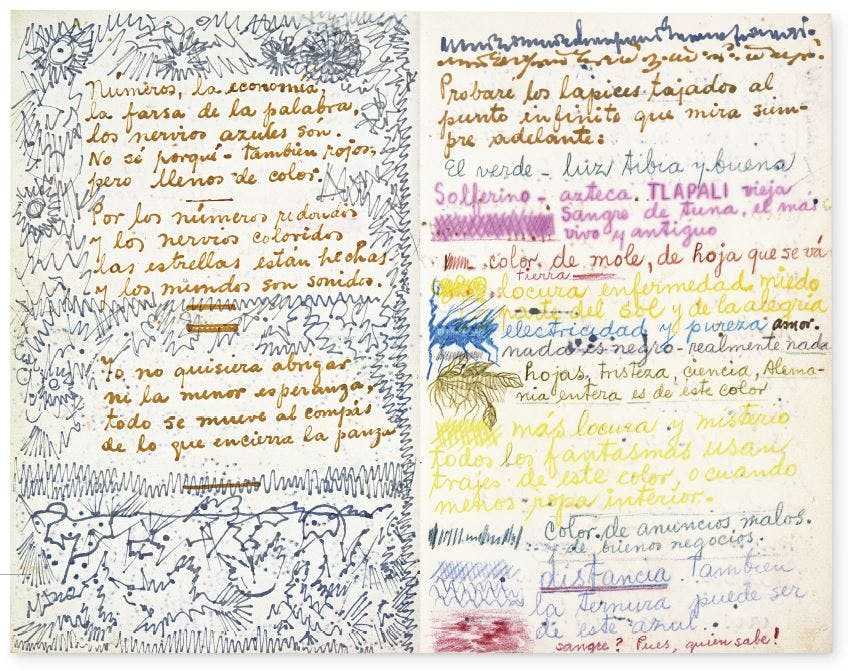 Números, la economía,
la farsa de la palabra,
los nervios azules són.
No sé porqué - tambien rojos,
pero llenos de color.
Por los números redondos
y los nervios coloridos
las estrellas estan hechas
y los mundos son sonidos.
Yo no quisiera abrigar
ni la menor esperanza,
todo se mueve al compás
de lo que encierra la panza
Probare los lapices tajados al
punto infinito que mira siem-
pre adelante:
El verde - luz tibia y buena
Solferino - azteca. TLAPALI vieja
sangre de tuna, el más
vivo y antiguo
color de mole, de hoja que se vá
tierra
locura enfermedad miedo
parte del sol y de la alegria
electricidad y pureza amor.
nada es negro - realmente nada
hojas, tristeza, ciencia, Alema-
nia entera es de este color
más locura y misterio
todos los fantasmas usan
trajes de este color, o cuando
menos ropa interior.
color de anuncios malos.
y de buenos negocios.
distancia. Tambien
la ternura puede ser
de este azul.
sangre? Pues, quien sabe!